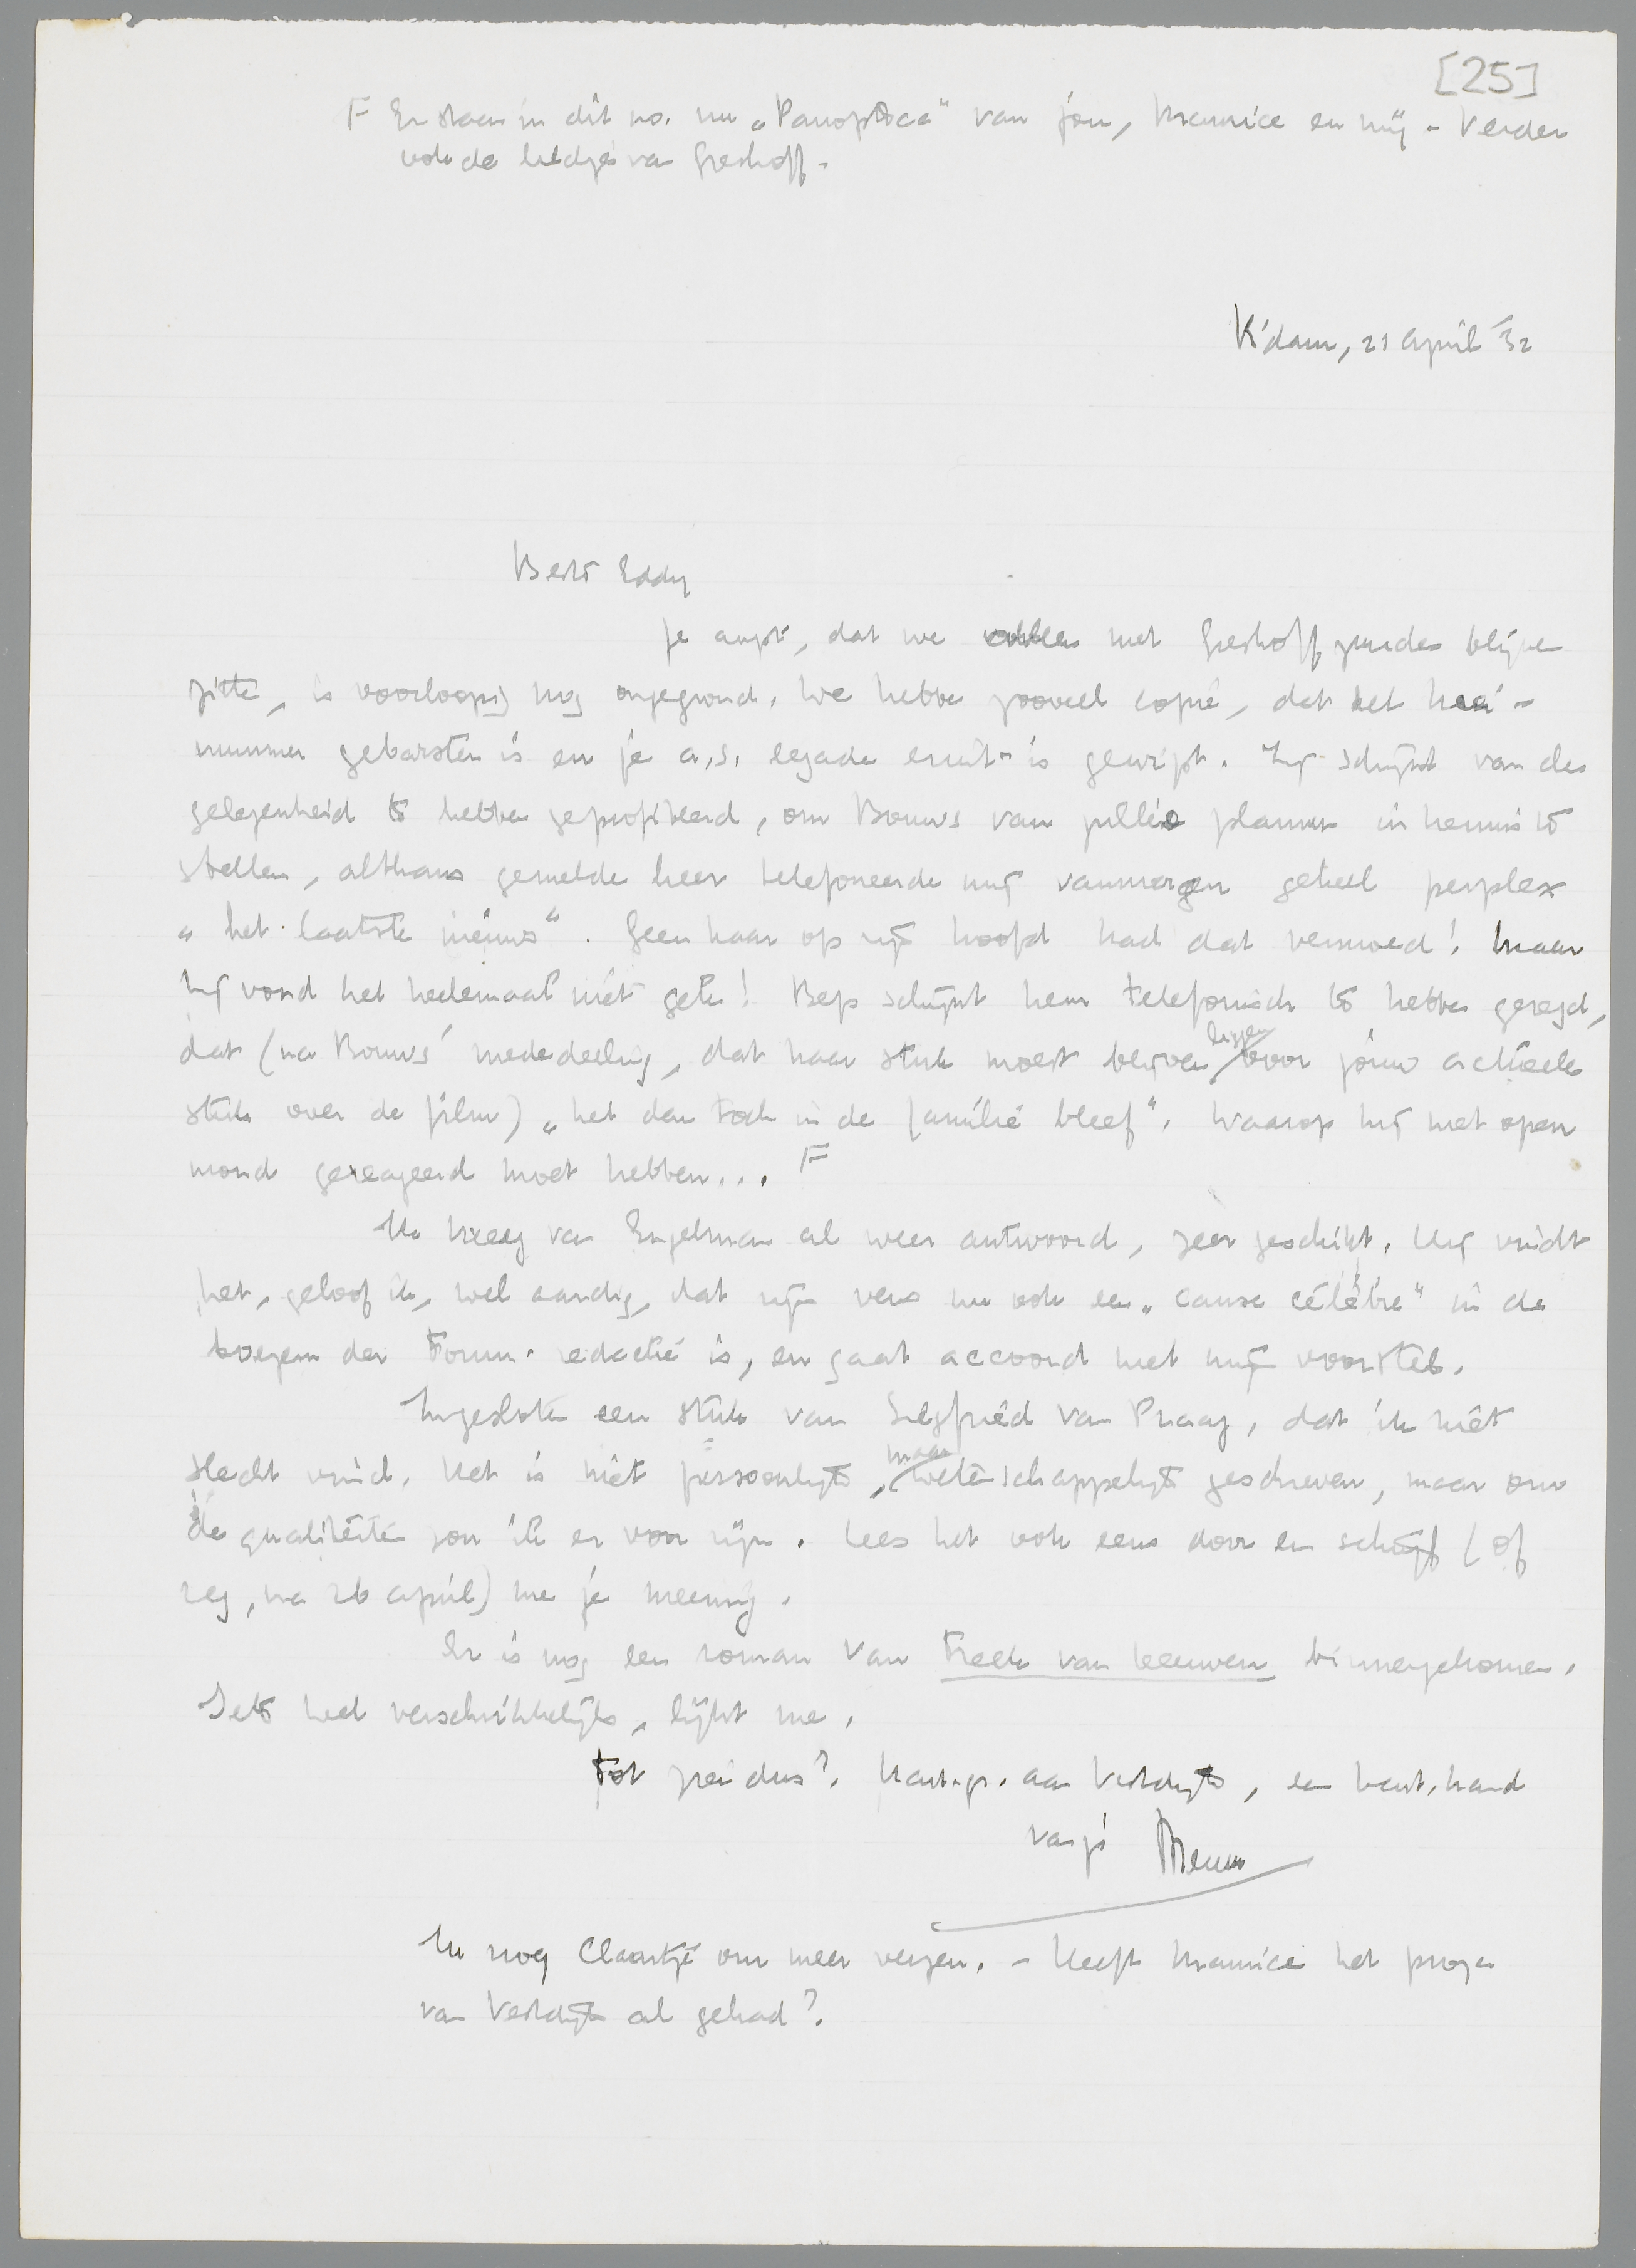 [25]
F Er staan in dit no. nu „Panoptica” van jou, Maurice en mij. Verder
ook de liedjes van Greshoff.
R'dam, 21 April '32
Beste Eddy
Je angst, dat we zullen met Greshoff zouden blijven
zitten, is voorloopig nog ongegrond. We hebben zooveel copie, dat het Mei-
nummer gebarsten is en je a.s. egade eruit is gewipt. Zij schijnt van des
gelegenheid te hebben geprofiteerd, om Bouws van jullie plannen in kennis te
stellen, althans gemelde heer telefoneerde mij vanmorgen geheel perplex
„het laatste nieuws”. Geen haar op zijn hoofd had dat vermoed! Maar
hij vond het heelemaal niet gek! Bep schijnt hem telefonisch te hebben gezegd,
dat (na Bouws' mededeeling, dat haar stuk moest blijven liggen voor jouw actueele
stuk over de film) „het dan toch in de familie bleef”. Waarop hij met open
mond gereageerd moet hebben... F
Ik kreeg van Engelman al weer antwoord, zeer geschikt. Hij vindt
het, geloof ik, wel aardig, dat zijn vers nu ook een „cause célèbre” in de
boezem der Forum-redactie is, en gaat accoord met mijn voorstel.
Ingesloten een stuk van Siegfried van Praag, dat ik niet
slecht vind. Het is niet persoonlijk, maar wetenschappelijk geschreven, maar om
de qualiteiten zou ik er voor zijn. Lees het ook eens door en schrijf (of
zeg, na 26 april) me je meening.
Er is nog een roman van Freek van Leeuwen binnengekomen.
Iets heel verschrikkelijks, lijkt me.
Tot ziens dus? Hart. gr. aan Vestdijk, een hart. hand
van je Menno
Ik vroeg Claartje om meer verzen. - Heeft Maurice het proza
van Vestdijk al gehad?